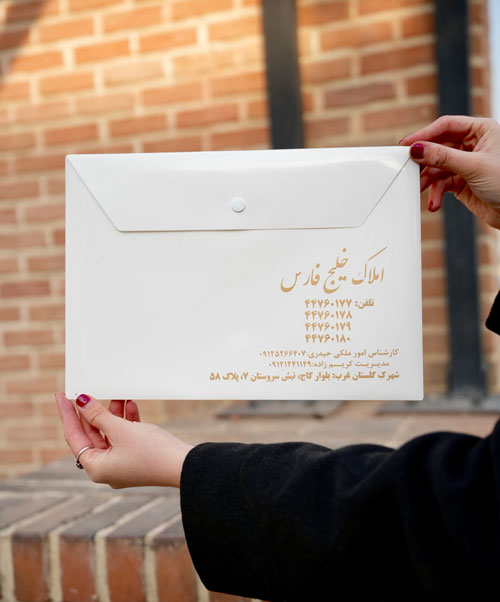 املاک خلیج فارس
تلفن: ۴۴۷۶۰۱۷۷
۴۴۷۶۰۱۷۸
۴۴۷۶۰۱۷۹
۴۴۷۶۰۱۸۰
کارشناس امور ملکی حیدری:۰۹۱۲۵۲۶۶۴۰۷
مدیریت کریم زاده:۰۹۱۲۱۲۴۱۱۴۹
شهرک گلستان غرب: بلوار کاج، نبش سروستان ۷، پلاک ۵۸